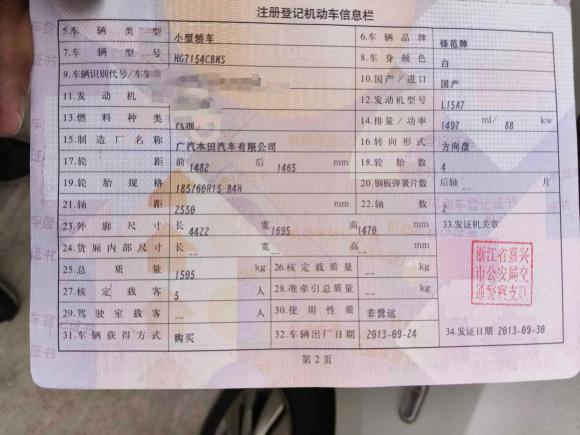 注册登记机动车信息栏
5.车辆类型 小型轿车 6.车辆品牌
7.车辆型号 HG7154CBMS 8.车身颜色 白
9.车辆识别代号/车架 10.国产/进口 国产
11.发动机 12.发动机型号 L15A7
13.燃料种类 汽油 14.排量/功率 1497 ml/ 88 kw
15.制造厂名称 广汽本田汽车有限公司 16.转向形式 方向盘
17.轮距 前 1482 后 1465 mm 18.轮胎数 4
19.轮胎规格 185/60R15 84H 20.钢板弹簧片数 后轴 -- 片
21.轴距 2550 mm 22.轴数 2
23.外廓尺寸 长 4422 宽 1695 高 1470 mm 33.发证机关章
24.货厢内部尺寸 长 -- 宽 -- 高 -- mm
浙江省嘉兴
市公安局交
通警察支队
25.总质量 1505 kg 26.核定载质量 -- kg
27.核定载客 5 人 28.准牵引总质量 -- kg
29.驾驶室载客 -- 人 30.使用性质 非营运
31.车辆获得方式 购买 32.车辆出厂日期 2013-09-24 34.发证日期 2013-09-30
第2页